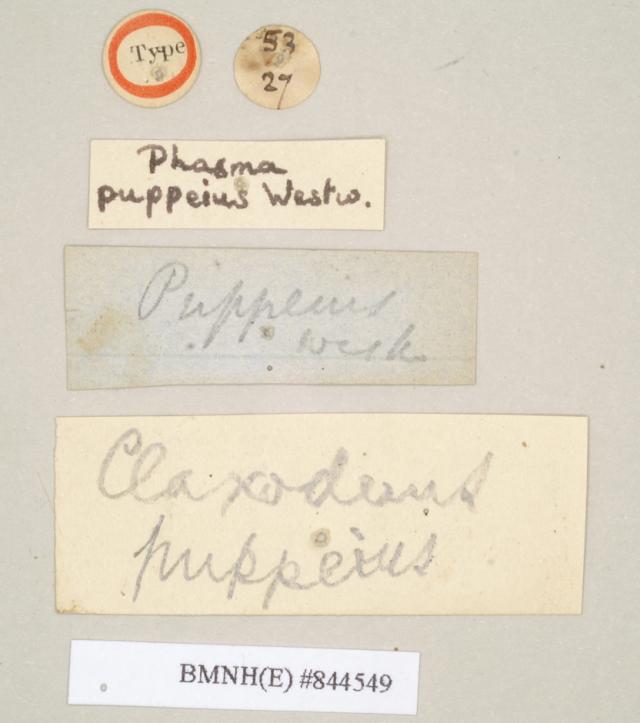 Type
53
27
Phasma
puppeius Westw.
Puppeius
westw.
Claxoderus
puppeius
BMNH(E) #844549